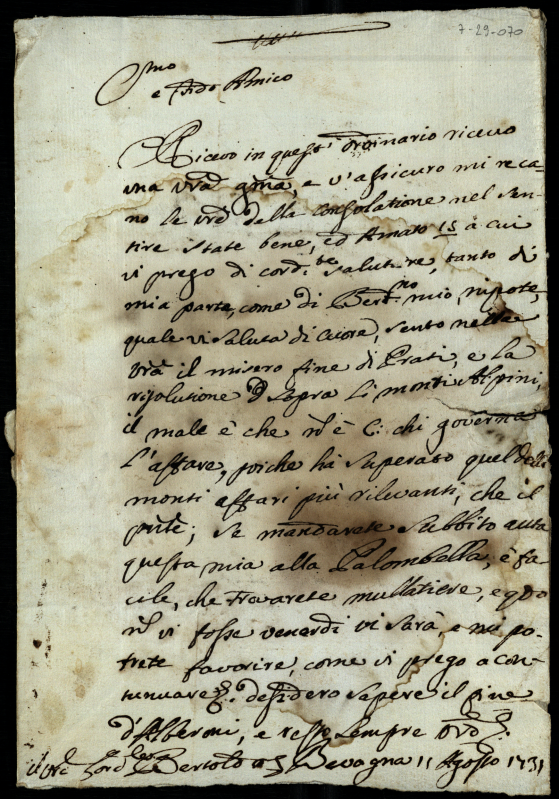 7-29-070
e fido Amico
Ricevo in quest' ordinario ricevo
una vrã, e v'assicuro mi reca-
no le vrẽ della consolatione nel sen-
tire state bene, ed Amato 15 à cui
vi prego di cord.te salutare, tanto di
mia parte, come di mio nipote,
quale vi saluta di cuore, sento nella
vrã il misero fine di Prati, e la
risolutione sopra li monti Alpini,
il male è che nõ è chi governa
l'affare, poiche hà superato quel delli
monti affari più rilevanti, che il
pñte; se mandarete subbito auta
questa mia alla Palombella, è fa-
cile, che trovarete mullatiere, e qdo
nõ vi fosse venerdi vi sarà, e mi po-
trete favorire, come vi prego a con-
tinuare. desidero sapere il fine
d'Alberoni, e resto sempre
Bevagna 11 Agosto 1731